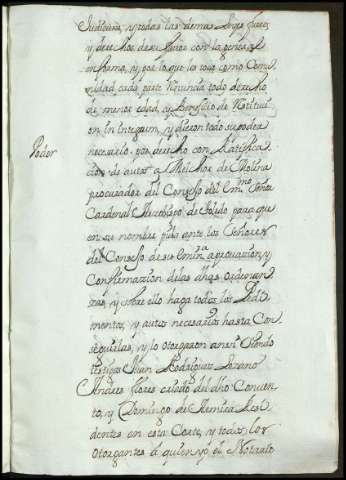 Judiciaria, y todas las demas Leyes fueros
y derechos de su favor con la general
en forma, y por lo que les toca como Comu-
nidad cada parte renuncia todo derecho
de menor edad, y Beneficio de Restitui
on in integrum, y dieron todo su poder
Poder
necesario por derecho con Ratifica
cion de autos a Melchor de Molina
procurador del Consejo del Em.mo Señor
Cardenal Arzobispo de Toledo para que
en su nombre pida ante los Señores
del Consejo de su Emin.a aprovazion, y
Confirmazion de las dhas Ordenan-
zas, y sobre ello haga todos los Pedi-
mentos, y autos necesarios hasta Con-
seguirlas, y lo otorgaron ansi siendo
testigos Juan Rodriguez Lozano
Andres flores criado del dho Conven-
to, y Domingo de Resi-
dentes en esta Corte, y todos los
otorgantes á quien yo, el Notario